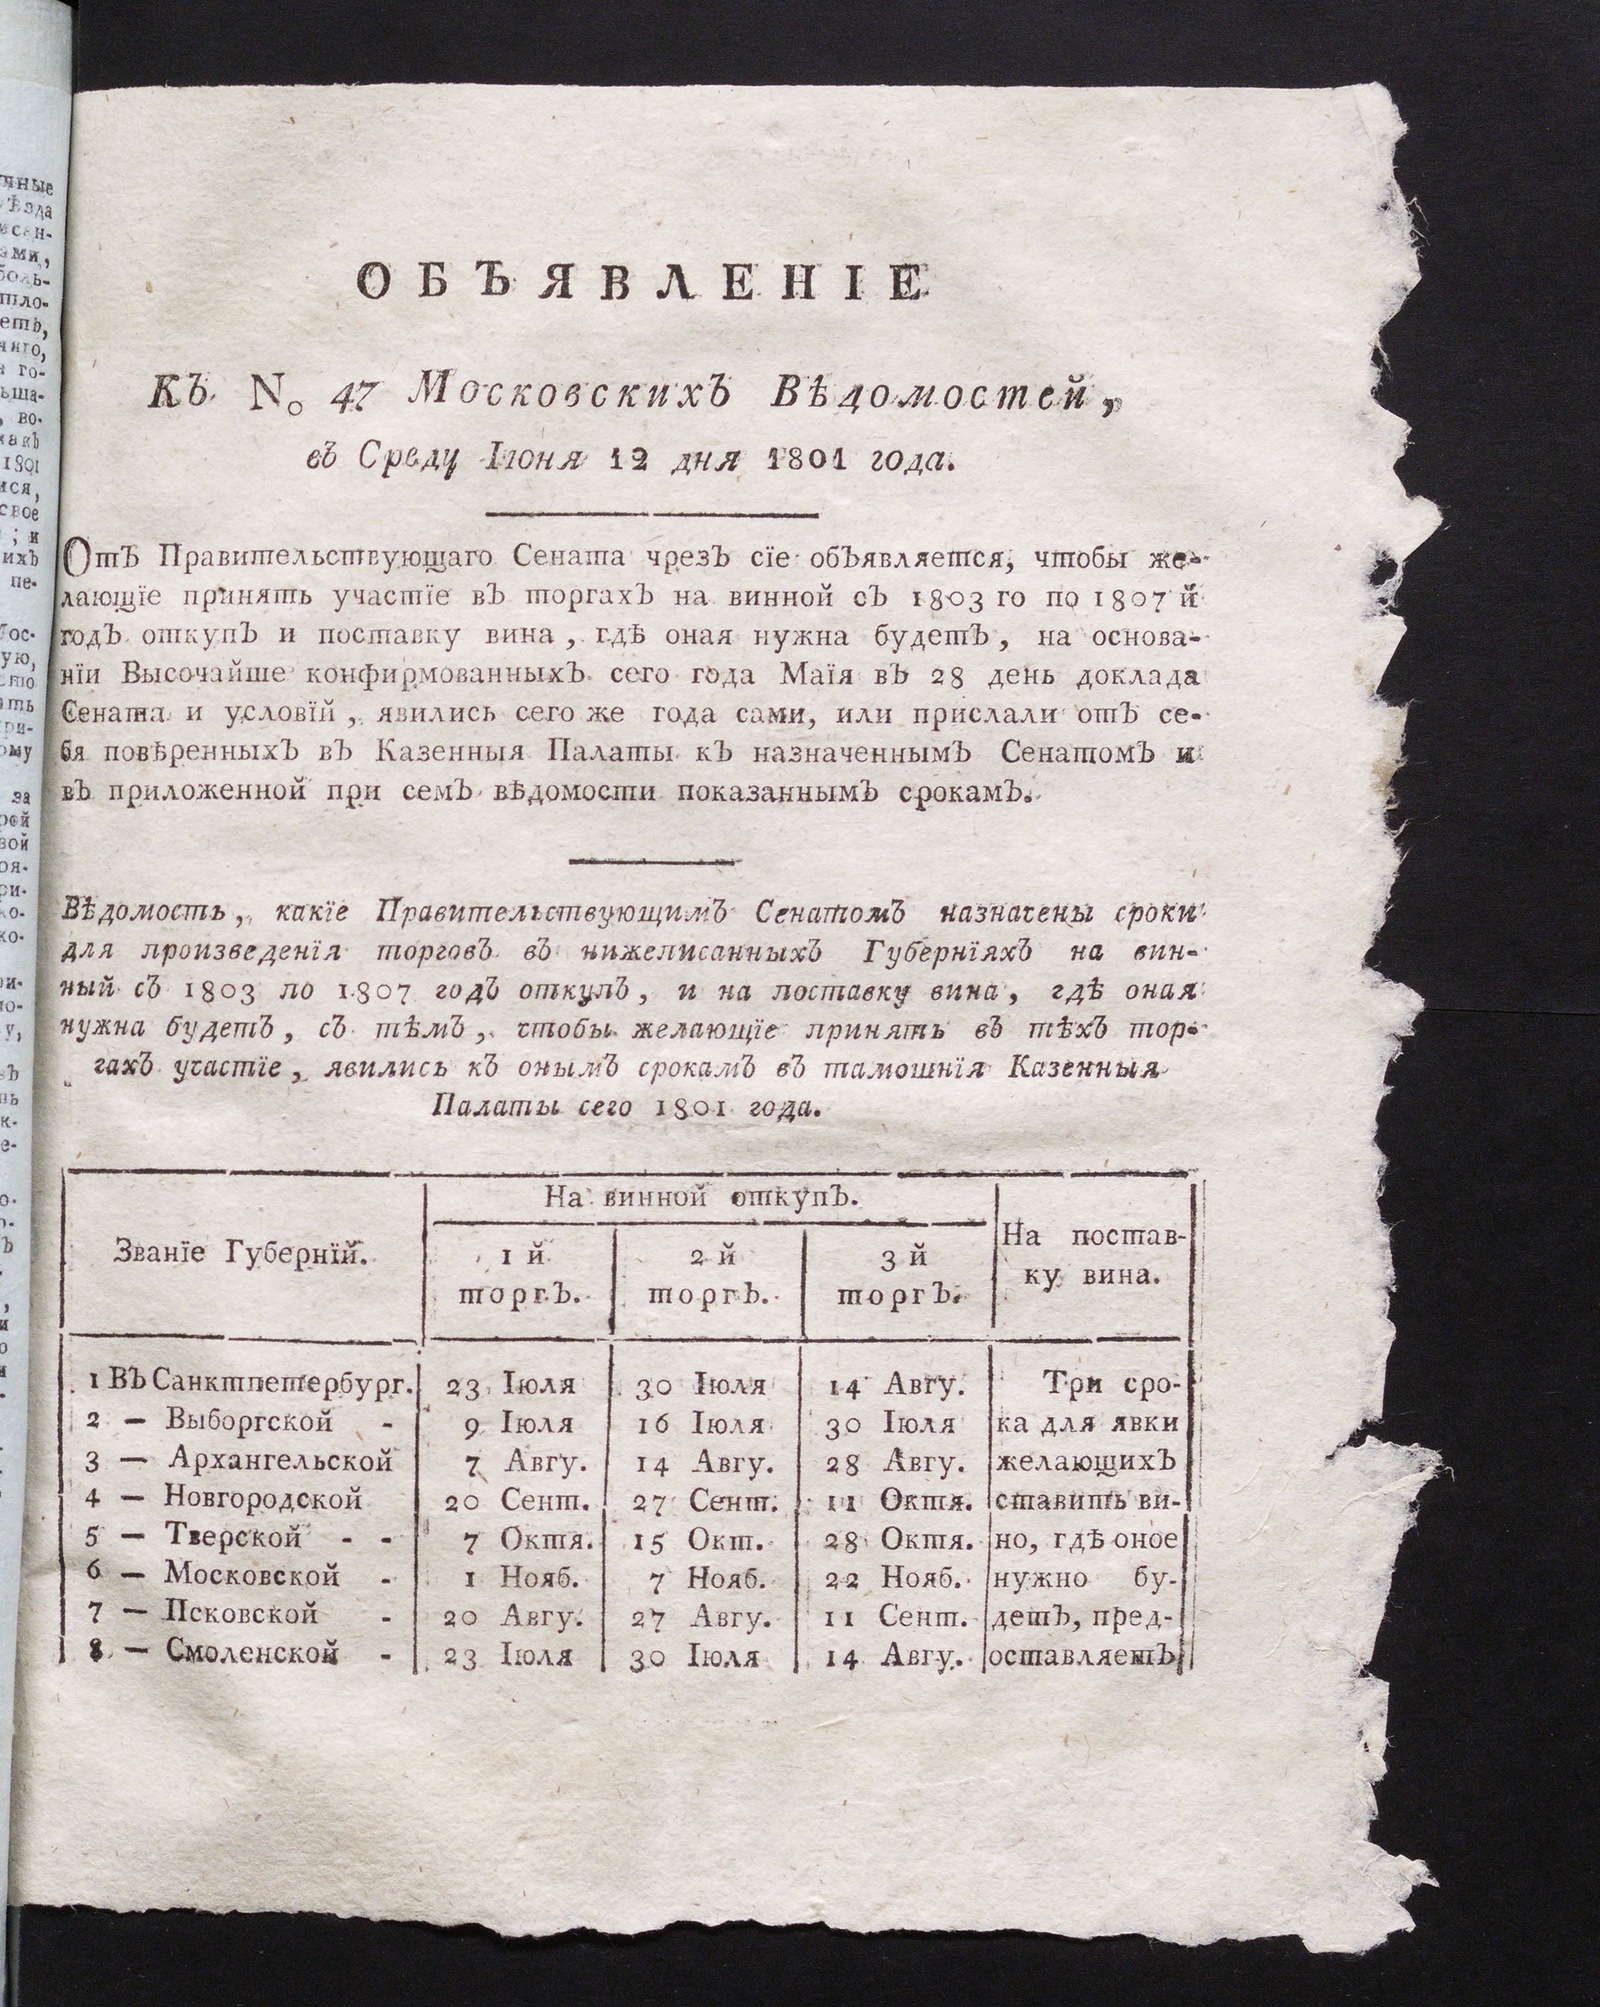 ОБЪЯВЛЕНІЕ
Къ No 47 Московскихъ Вѣдомостей,
въ Среду Іюня 12 дня 1801 года.
Отъ Правительствующаго Сената чрезъ сїе объявляется, чтобы же-
лающїе принять участїе въ торгахъ на винной съ 1803 го по 1807 й
годъ откупъ и поставку вина, гдѣ оная нужна будетъ, на основа-
нїи Высочайше конфирмованныхъ сего года Маїя въ 28 день доклада
Сената и условїй, явились сего же года сами, или прислали отъ се-
бя повѣренныхъ въ Казенныя Палаты къ назначеннымъ Сенатомъ и
въ приложенной при семъ вѣдомости показаннымъ срокамъ.
Вѣдомость, какїе Правительствующимъ Сенатомъ назначены сроки
для произведенїя торговъ въ нижеписанныхъ Губернїяхъ на вин-
ный съ 1803 по 1807 годъ откупъ, и на поставку вина, гдѣ оная
нужна будетъ, съ тѣмъ, чтобы желающїе принять въ тѣхъ тор-
гахъ участїе, явились къ онымъ срокамъ въ тамошнїя Казенныя
Палаты сего 1801 года.
Званїе Губернїй. На винной откупъ. На постав-
ку вина.
1 й торгъ. 2 й торгъ. 3 й торгъ.
1 Въ Санктпетербург. 23 Іюля 30 Іюля 14 Авгу. Три сро-
2 — Выборгской - 9 Іюля 16 Іюля 30 Іюля ка для явки
3 — Архангельской 7 Авгу. 14 Авгу. 28 Авгу. желающихъ
4 — Новгородской 20 Сент. 27 Сент. 11 Октя. ставить ви-
5 — Тверской - - 7 Октя. 15 Окт. 28 Октя. но, гдѣ оное
6 — Московской - 1 Нояб. 7 Нояб. 22 Нояб. нужно бу-
7 — Псковской - 20 Авгу. 27 Авгу. 11 Сент. детъ, пред-
8 — Смоленской - 23 Іюля 30 Іюля 14 Авгу. оставляетъ